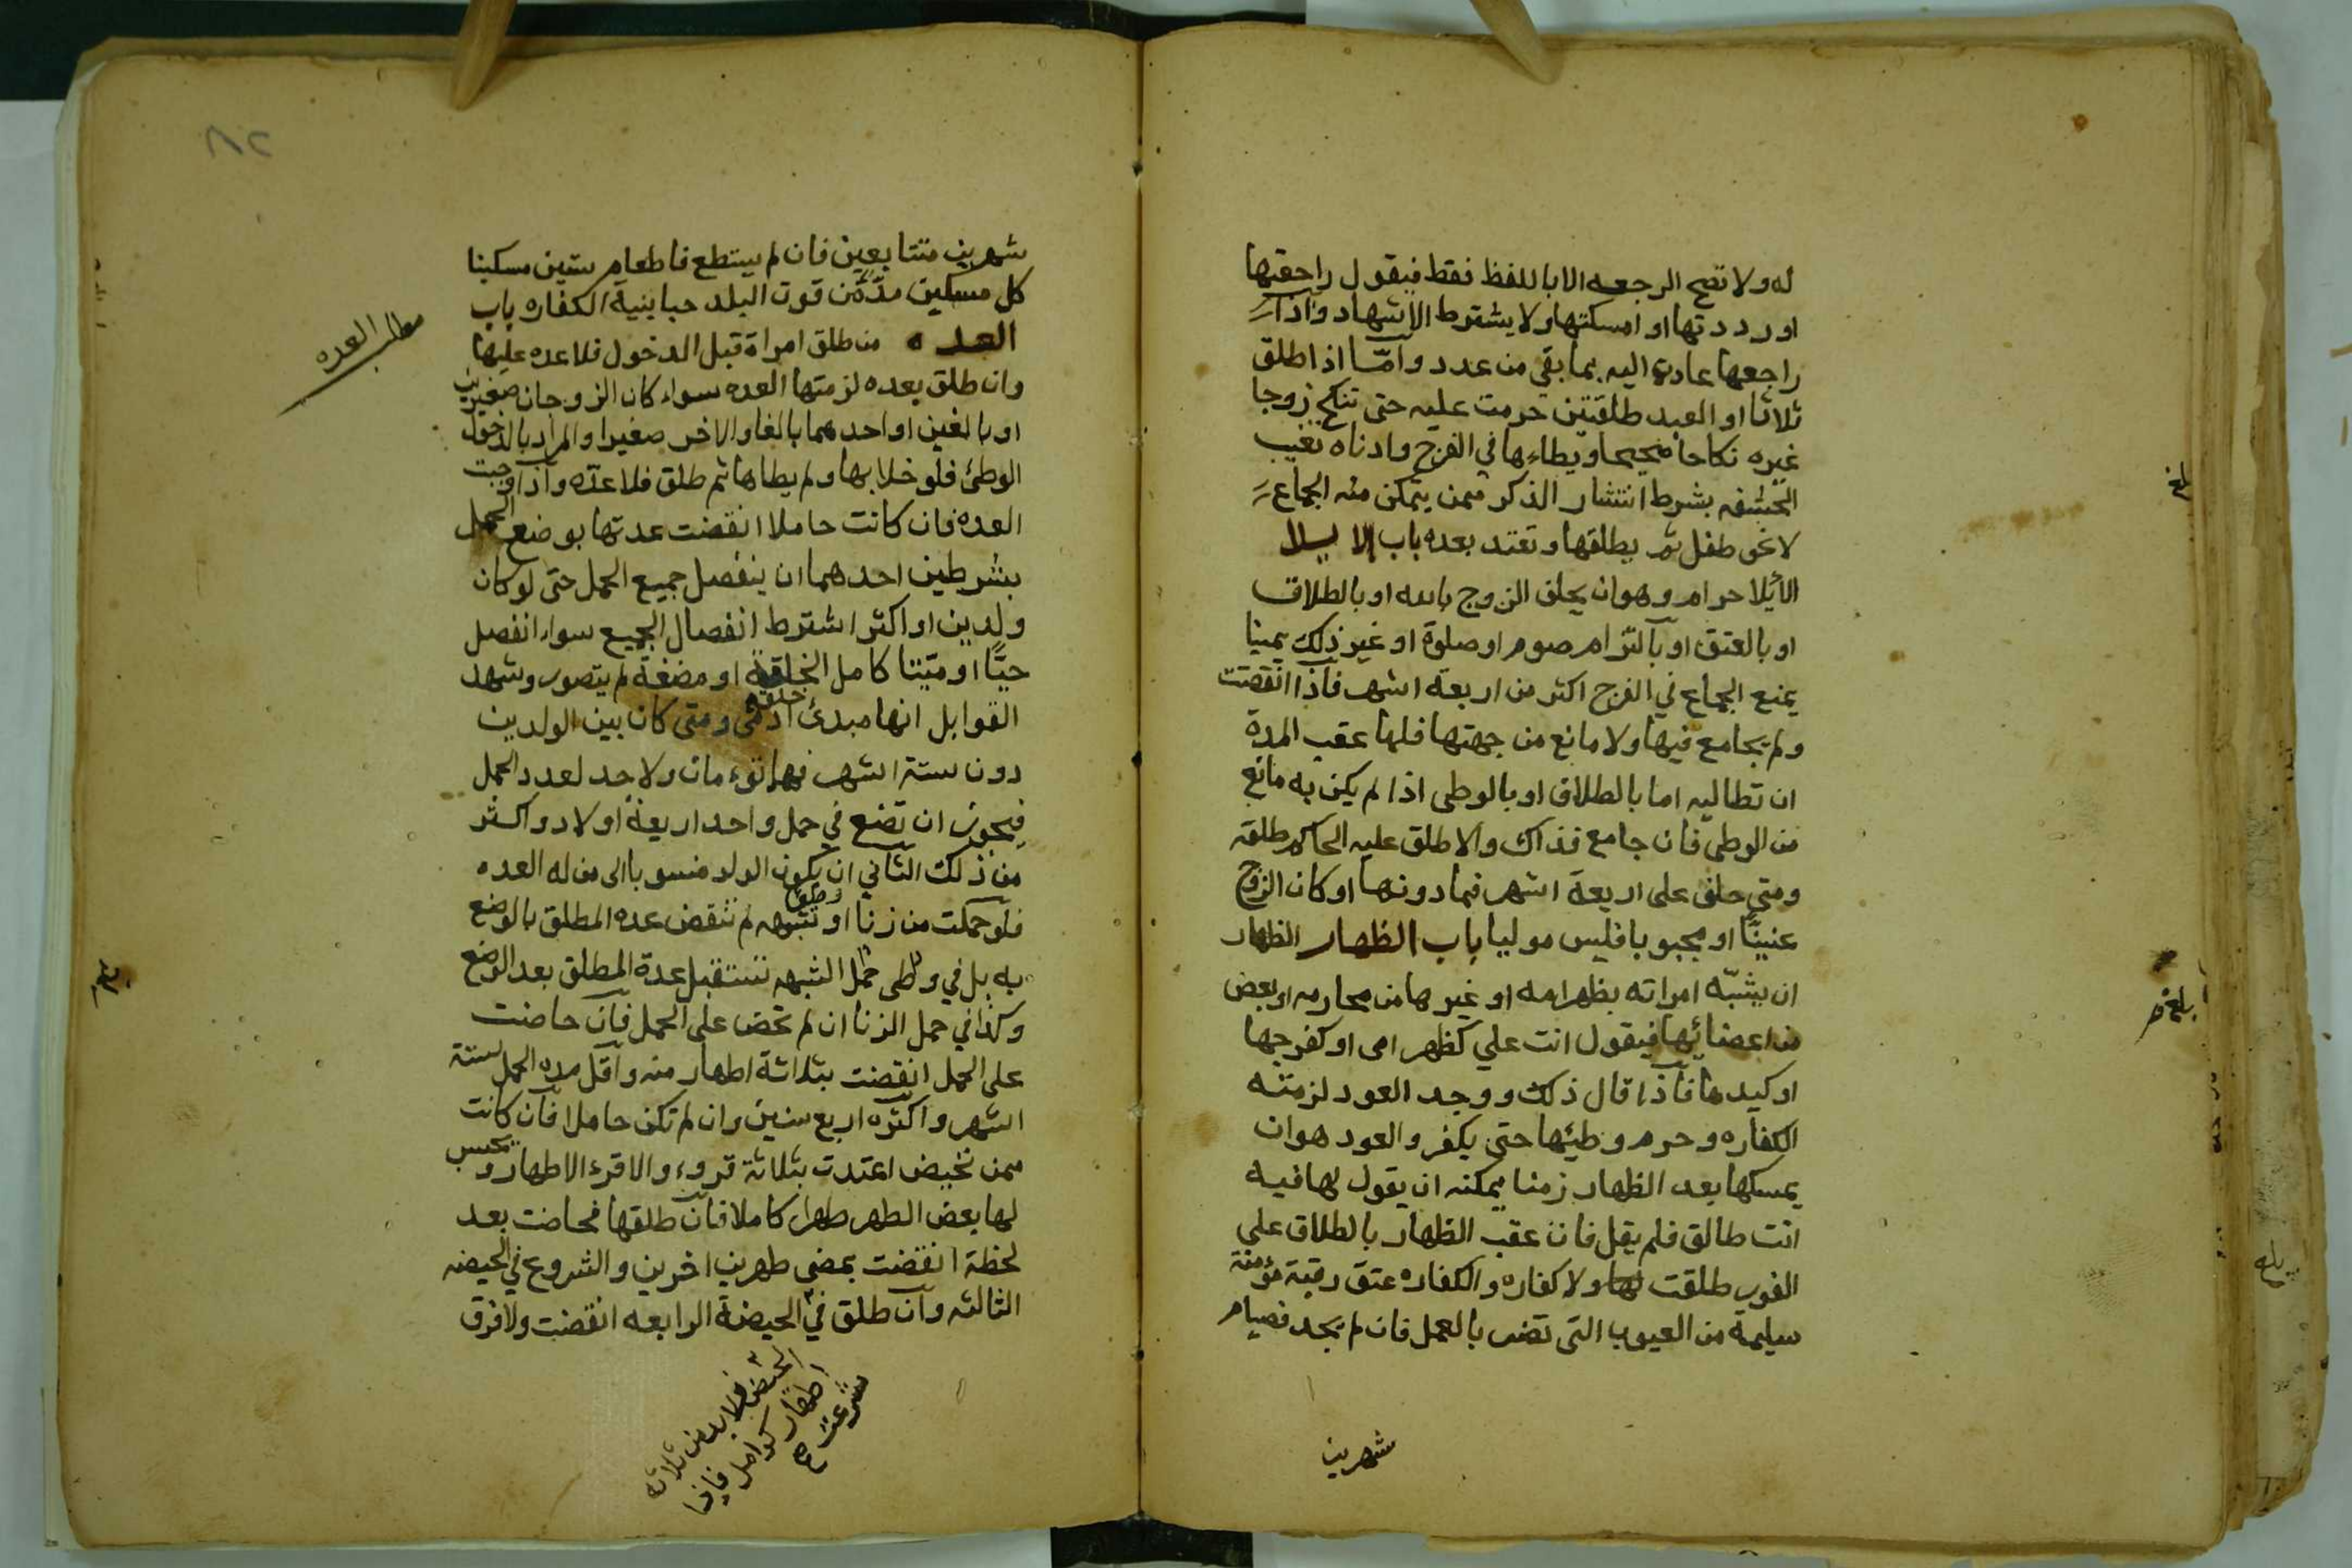 له ولا تصح الرجعه الا باللفظ فقط فيقول راجعتها
او رددتها او امسكتها ولا يشترط الاشهاد واذا
راجعها عادت اليه بما بقي من عدد وامّا اذا طلق
ثلاثا او العبد طلقتين حرمت عليه حتى تنكح زوجا
غيره نكاحا صحيحا ويطاءها في الفرج وادناه تغيب
الحشفه بشرط انتشار الذكر ممن يتمكن منه الجماع
لا نحو طفل ثم يطلقها وتعتد بعده باب الايلا
الائيلا حرام وهو ان يحلف الزوج بالله او بالطلاق
او بالعتق او بالتزام صوم او صلوة او غير ذلك يمينا
يمنع الجماع في الفرج اكثر من اربعة اشهر فاذا انقضت
ولم يجامع فيها ولا مانع من جهتها فلها عقب المدة
ان تطالبه اما بالطلاق او بالوطى اذا لم يكن به مانع
من الوطى فان جامع فذاك والا طلق عليه الحاكم طلقه
ومتى حلف على اربعة اشهر فما دونها او كان الزوج
عنينًا او مجبوبا فليس موليا باب الظهار الظهار
ان يشبّه امراته بظهر امه او غيرها من محارمه او بعض
من اعضائها فيقول انت علي كظهر امى او كفرجها
او كيدها فاذا قال ذلك ووجد العود لزمته
الكفاره وحرم وطيئها حتى يكفر والعود هو ان
يمسكها بعد الظهار زمنا يمكنه ان يقول لها فيه
انت طالق فلم يقل فان عقب الظهار بالطلاق على
الفور طلقت لها ولا كفاره والكفاره عتق رقبة مؤمنة
سليمة من العيوب التى تضر بالعمل فان لم يجد فصيام
شهرين
بلغ
بلغ م
بلغ
٨٢
شهرين متتابعين فان لم يستطع فاطعام ستين مسكينا
كل مسكين مدّ من قوت البلد حبا بنية الكفاره باب
العده من طلق امراة قبل الدخول فلا عده عليها
وان طلق بعده لزمتها العده سواء كان الزوجان صغيرين
او بالغين او احدهما بالغا والاخر صغيرا والمراد بالدخول
الوطئ فلو خلا بها ولم يطاها ثم طلق فلا عدّه واذا وجبت
العده فان كانت حاملا انقضت عدتها بوضع الحمل
بشرطين احدهما ان ينفصل جميع الحمل حتى لو كان
ولدين او اكثر اشترط انفصال الجميع سواء انفصل
حيًّا او ميّتا كامل الخلقة او مضغة لم يتصور وشهد
القوابل انها مبدئ خلقة ادمى ومتى كان بين الولدين
دون ستة اشهر فهما توءمان ولا حد لعدد الحمل
فيجوز ان تضع في حمل واحد اربعة اولاد واكثر
من ذلك الثاني ان يكون الولد منسوبا الى من له العده
فلو حملت من زنا او وطئ شبهه لم تنقض عده المطلق بالوضع
به بل في وطى حمل الشبهه تستقبل عدة المطلق بعد الوضع
وكذا في حمل الزنا ان لم تحض على الحمل فان حاضت
على الحمل انقضت بثلاثة اطهار منه واقل مده الحمل ستة
اشهر واكثره اربع سنين وان لم تكن حاملا فان كانت
ممن تحيض اعتدت بثلاثة قروء والاقرء الاطهار ويحسب
لها بعض الطهر طهرا كاملا فان طلقها فحاضت بعد
لحظة انقضت بمضى طهرين اخرين والشروع في الحيضه
الثالثه وان طلق في الحيضة الرابعه انقضت ولا فرق
مطلب العده
بلغ
الحيض فلا بد من ثلاثه
اطهار كوامل فاذا
شرعت صح